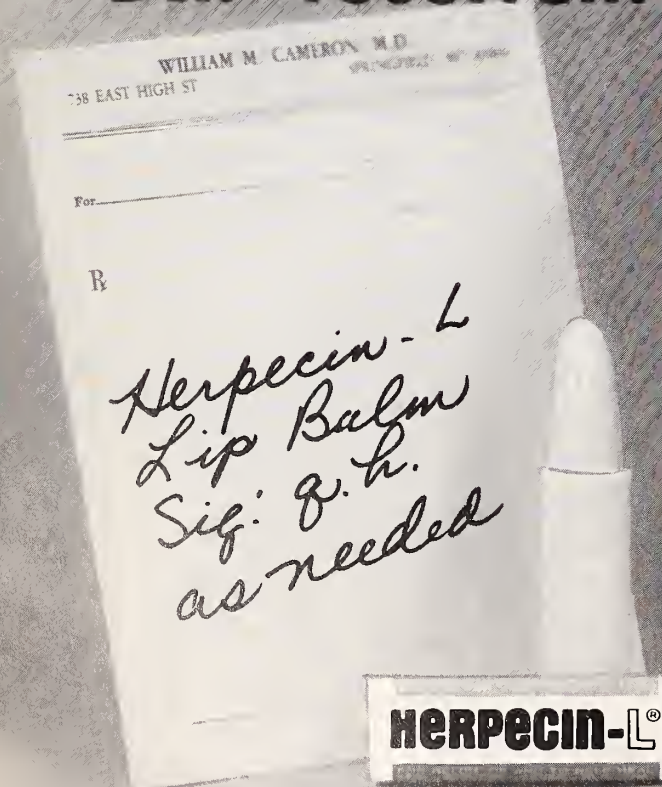 WILLIAM M. CAMERON M.D.
738 EAST HIGH ST
For
℞
Herpecin-L
Lip Balm
Sig: q.h.
as needed
HERPECIN-L®